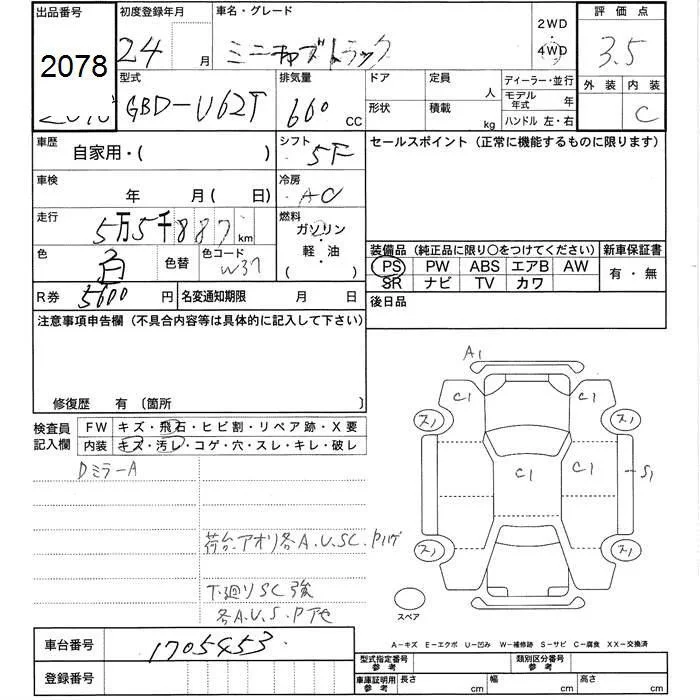 出品番号
2078
初度登録年月
24 月
車名・グレード
ミニキャブトラック
2WD
・
4WD
評価点
3.5
外装 内装
C
型式
GBD-U62T
排気量
660 CC
ドア
形状
定員 人
積載 kg
ディーラー・並行
モデル
年式 年
ハンドル 左・右
車歴
自家用・( )
シフト
5F
セールスポイント (正常に機能するものに限ります)
車検
年 月( 日)
冷房
AC
走行
5万5千887 km
燃料
ガソリン
・
軽・油
( )
色
白
色替
色コード
W37
装備品 (純正品に限り○をつけてください)
PS PW ABS エアB AW
SR ナビ TV カワ
新車保証書
有・無
R券
5600 円
名変通知期限 月 日
後日品
注意事項申告欄 (不具合内容等は具体的に記入して下さい)
修復歴 有 〔箇所 〕
検査員
記入欄
FW キズ・飛石・ヒビ割・リペア跡・X要
内装 キズ・汚レ・コゲ・穴・スレ・キレ・破レ
DミラーA
荷台.アオリ各A.U.SC.Pハゲ
下廻リSC強
各A.U.S.P
A1
C1 C1
スノ スノ
C1 C1
S1
スノ スノ
スペア
車台番号
1705453
登録番号
A-キズ E-エクボ U-凹み W-補修跡 S-サビ C-腐食 XX-交換済
型式指定番号
参考
類別区分番号
参考
車庫証明用
参考
長さ cm
幅 cm
高さ cm